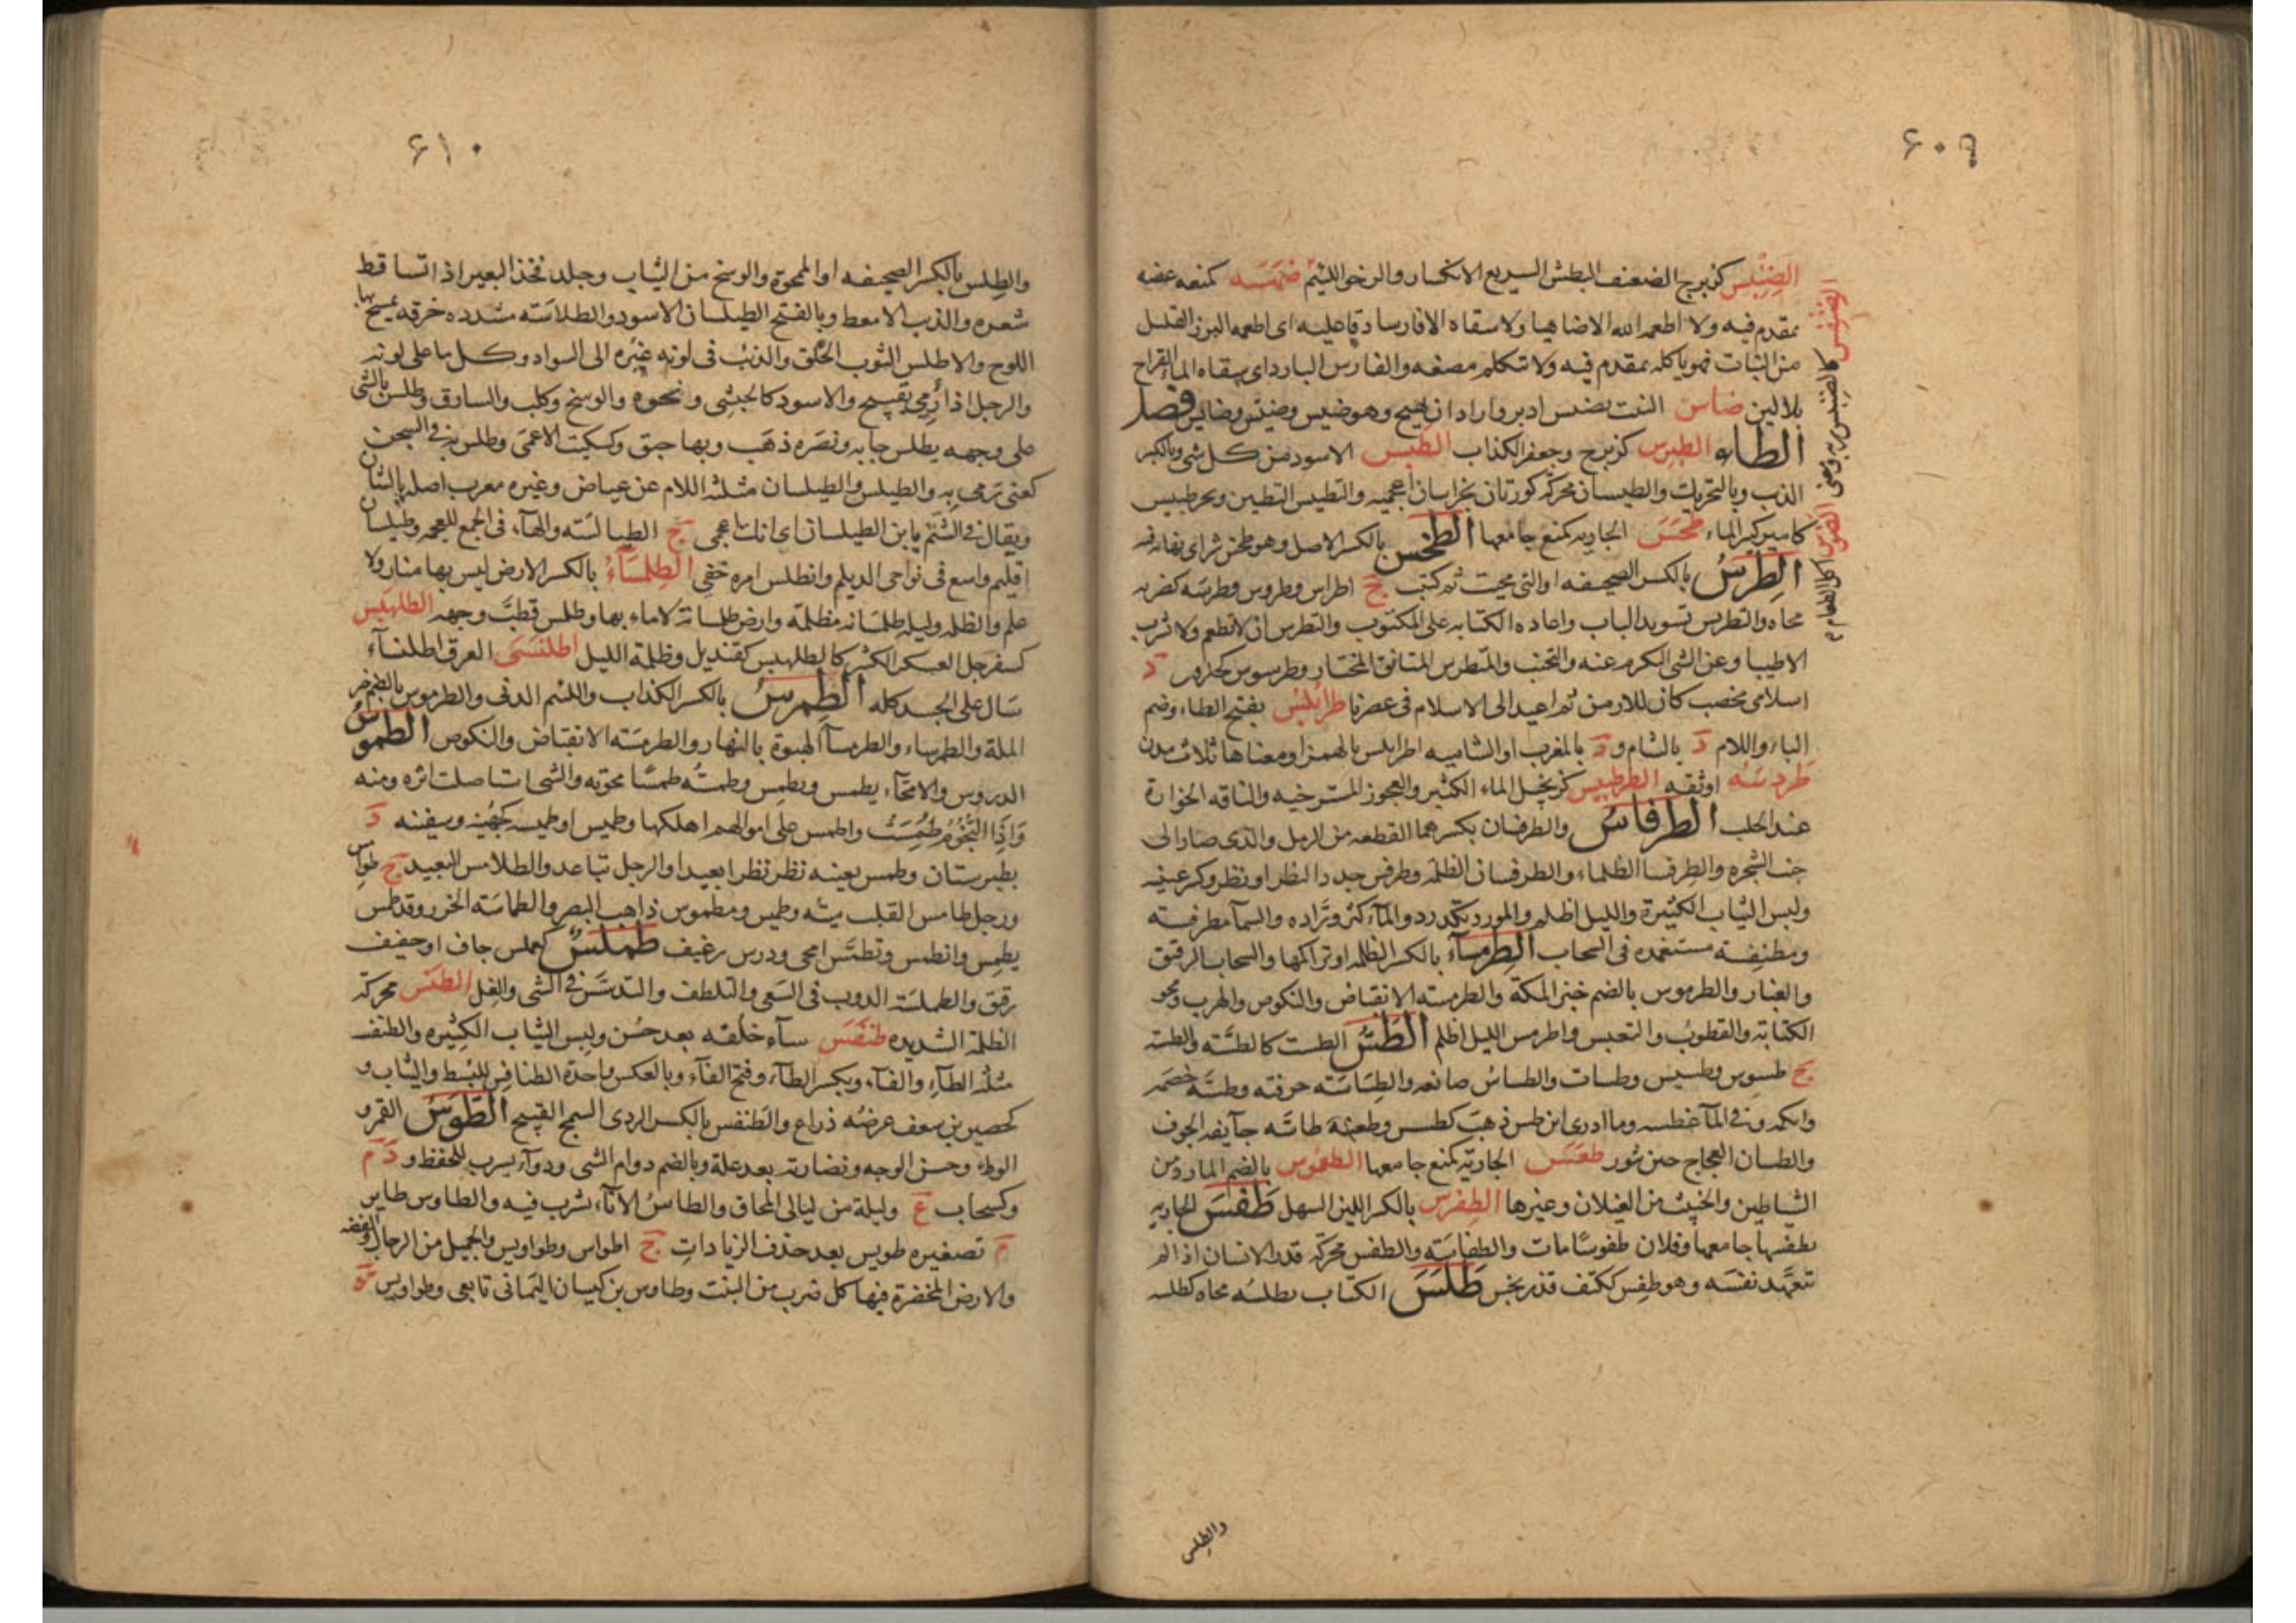 ٦٠٩
الضِنْبِس كزبرج الضعيف البطش السريع الانكسار والرخو اللئيم ضَمَسَه كمنعه عضه
بمقدم فيه ولا اطعمه الله الا ضاهيا ولا سقاه الا قارسا دعا عليه اى اطعمه النزر القليل
من النبات فهو ياكله بمقدم فيه ولا يتكلم مضغه والقارس البارد اى سقاه الماء القراح
بلا لبن ضاس النبت يضيس ادبر واراد ان يهيج وهو ضيس وضيّس وضايس فصل
الطاء الطِبرِس كزبرج وجعفر الكذاب الطَبس الاسود من كل شى وبالكسر
الذيب وبالتحريك والطبسان محركة كورتان بخراسان اعجمية والتطبيس التطيين وبحر طبيس
كامير كثير الماء طَحَسَ الجارية كمنع جامعها الطخس بالكسر الاصل وهو طخس شر اى نهاية فيه
الطِرسُ بالكسر الصحيفه او التى محيت ثم كتبت ج اطراس وطروس وطرسه كضربه
محاه والتطريس تسويد الباب واعادة الكتابه على المكتوب والتطرس ان لا تطعم ولا تشرب
الا طيبا وعن الشى التكرم عنه والتجنب والمتطرس المتانق المختار وطرسوس كحلزون د
اسلامى مخصب كان للارمن ثم اعيد الى الاسلام فى عصرنا طرابلس بفتح الطاء وضم
الباء واللام د بالشام و د بالمغرب او الشاميه اطرابلس بالهمز او معناها ثلاث مدن
طَردسَه اوثقه الطرطبيس كزنجبيل الماء الكثير والعجوز المسترخيه والناقه الخوارة
عند الحلب الطرفاسُ والطرفسان بكسرهما القطعه من الرمل والذى صار الى
جنب الشجره والطرفسا الظلماء والطرفسان الظلمة وطرفس حدد النظر او نظر وكسر عينيه
ولبس الثياب الكثيرة والليل اظلم والمورد تكدر والمآ كثر ورّاده والسمآ مطرفسة
ومطنفسة مستغمده فى السحاب الطِرمسآء بالكسر الظلمه او تراكمها والسحاب الرقيق
والغبار والطرموس بالضم خبز الملة والطرمسه الانقباض والنكوص والهرب ومحو
الكتابة والقطوبُ والتعبس واطرمس الليل اظلم الطَسُّ الطست كالطسّة والطسة
ج طسوس وطسيس وطسات والطساسُ صانعه والطِسَاسَه حرفته وطسَّه خصمه
وابكمه وفى المآ غطسه وما ادرى اين طس ذهب كطسس وطعنة طاسّه جآيفه الجوف
والطسان العجاج حين يثور طعَسَ الجارية كمنع جامعها الطغموس بالضم المارد من
الشياطين والخبيث من الغيلان وغيرها الطِفرس بالكسر اللين السهل طَفَسَ الجاريه
يطفسها جامعها وفلان طفوسًا مات والطفاسَة والطفس محركة قذر الانسان اذا لم
يتعهّد نفسَه وهو طفِس ككتف قذر نجس طَلَسَ الكتاب يطلسُه محاه كطلسه
والطلس
٦١٠
والطِلس بالكسر الصحيفه او الممحوة والوسخ من الثياب وجلد فخذ البعير اذا تساقط
شعره والذيب الامعط وبالفتح الطيلسان الاسود والطلاسَه مشدده خرقه يمسح بها
اللوح والاطلس الثوب الخَلَق والذئبُ فى لونه غُبْرة الى السواد وكل ما على لونه
والرجل اذا رُمى بقبيح والاسود كالحبشى ونحوه والوسخ وكلب والسارق وطلس بالشى
على وجهه يطلس جا به وبصَره ذهَب وبها حبق وكسكيت الاعمى وطلس به فى السجن
كعنى رمى به والطيلس والطيلسان مثلثه اللام عن عياض وغيره معرب اصله تالشان
ويقال فى الشتم يا ابن الطيلسان اى انك اعجمى ج الطيالسَه والهآء فى الجمع للعجمه وطيلسان
اقليم واسع فى نواحى الديلم وانطلس امره خفى الطِلمسآءُ بالكسر الارض ليس بها منار ولا
علم والظلمه وليله طِلمسَانه مظلمة وارض طلمسانة لا ماء بها وطلمس قطّب وجهه الطلهَيس
كسفرجل العسكر الكثير كالطلهيس كقنديل وظلمة الليل اطلنسَى العرق اطلنسآء
سَال على الجسد كله الطِمرِسُ بالكسر الكذاب واللئيم الدنى والطرموس بالضم خبز
الملة والطمرساء والطرمسآ الهبوة بالنهار والطمرسَة الانقباض والنكوص الطموسُ
الدروس والامحآء يطمس ويطمِس وطمستُه طمسًا محوته والشى استاصلت اثره ومنه
وَاِذَا النُّجُومُ طُمِسَت واطمس على اموالهم اهلكها وطميس او طميسه كجُهينه وسفينه د
بطبرستان وطمس بعينه نظر نظرا بعيدا والرجل تباعد والطلامس البعيد ج طوامس
ورجل طامس القلب ميته وطميس ومطموس ذاهب البصر والطماسَة الحزر وقد طمس
يطمِس وانطمس وتطمّس امحى ودرس رغيف طملسٌ كعملس جاف او خفيف
رقيق والطملسَة الدوب فى السَعى والتلطف والتدسّس فى الشى والغل الطَنَس محركة
الظلمة الشديده طَنفَسَ سآء خلقه بعد حسُن ولبس الثياب الكثيره والطنفسه
مثلثه الطآءِ والفآء وبكسر الطآء وفتح الفآء وبالعكس واحدة الطنافِس للبُسط والثياب و
كحصير من سعف عرضُه ذراع والطنفس بالكسر الردى السمج القبيح الطَوسُ القمر و
الوطء وحسن الوجه ونضارته بعد علة وبالضم دوام الشى ودوآء يشرب للحفظ و د م
وكسحاب ع وليلة من ليالى المحاق والطاسُ الانآء يشرب فيه والطاوس طاير
م تصغيره طويس بعد حذف الزيادات ج اطواس وطواويس والجميل من الرجال والفضه
والارض المخضرة فيها كل ضرب من النبت وطاوس بن كيسان اليَمانى تابعى وطواويس ة